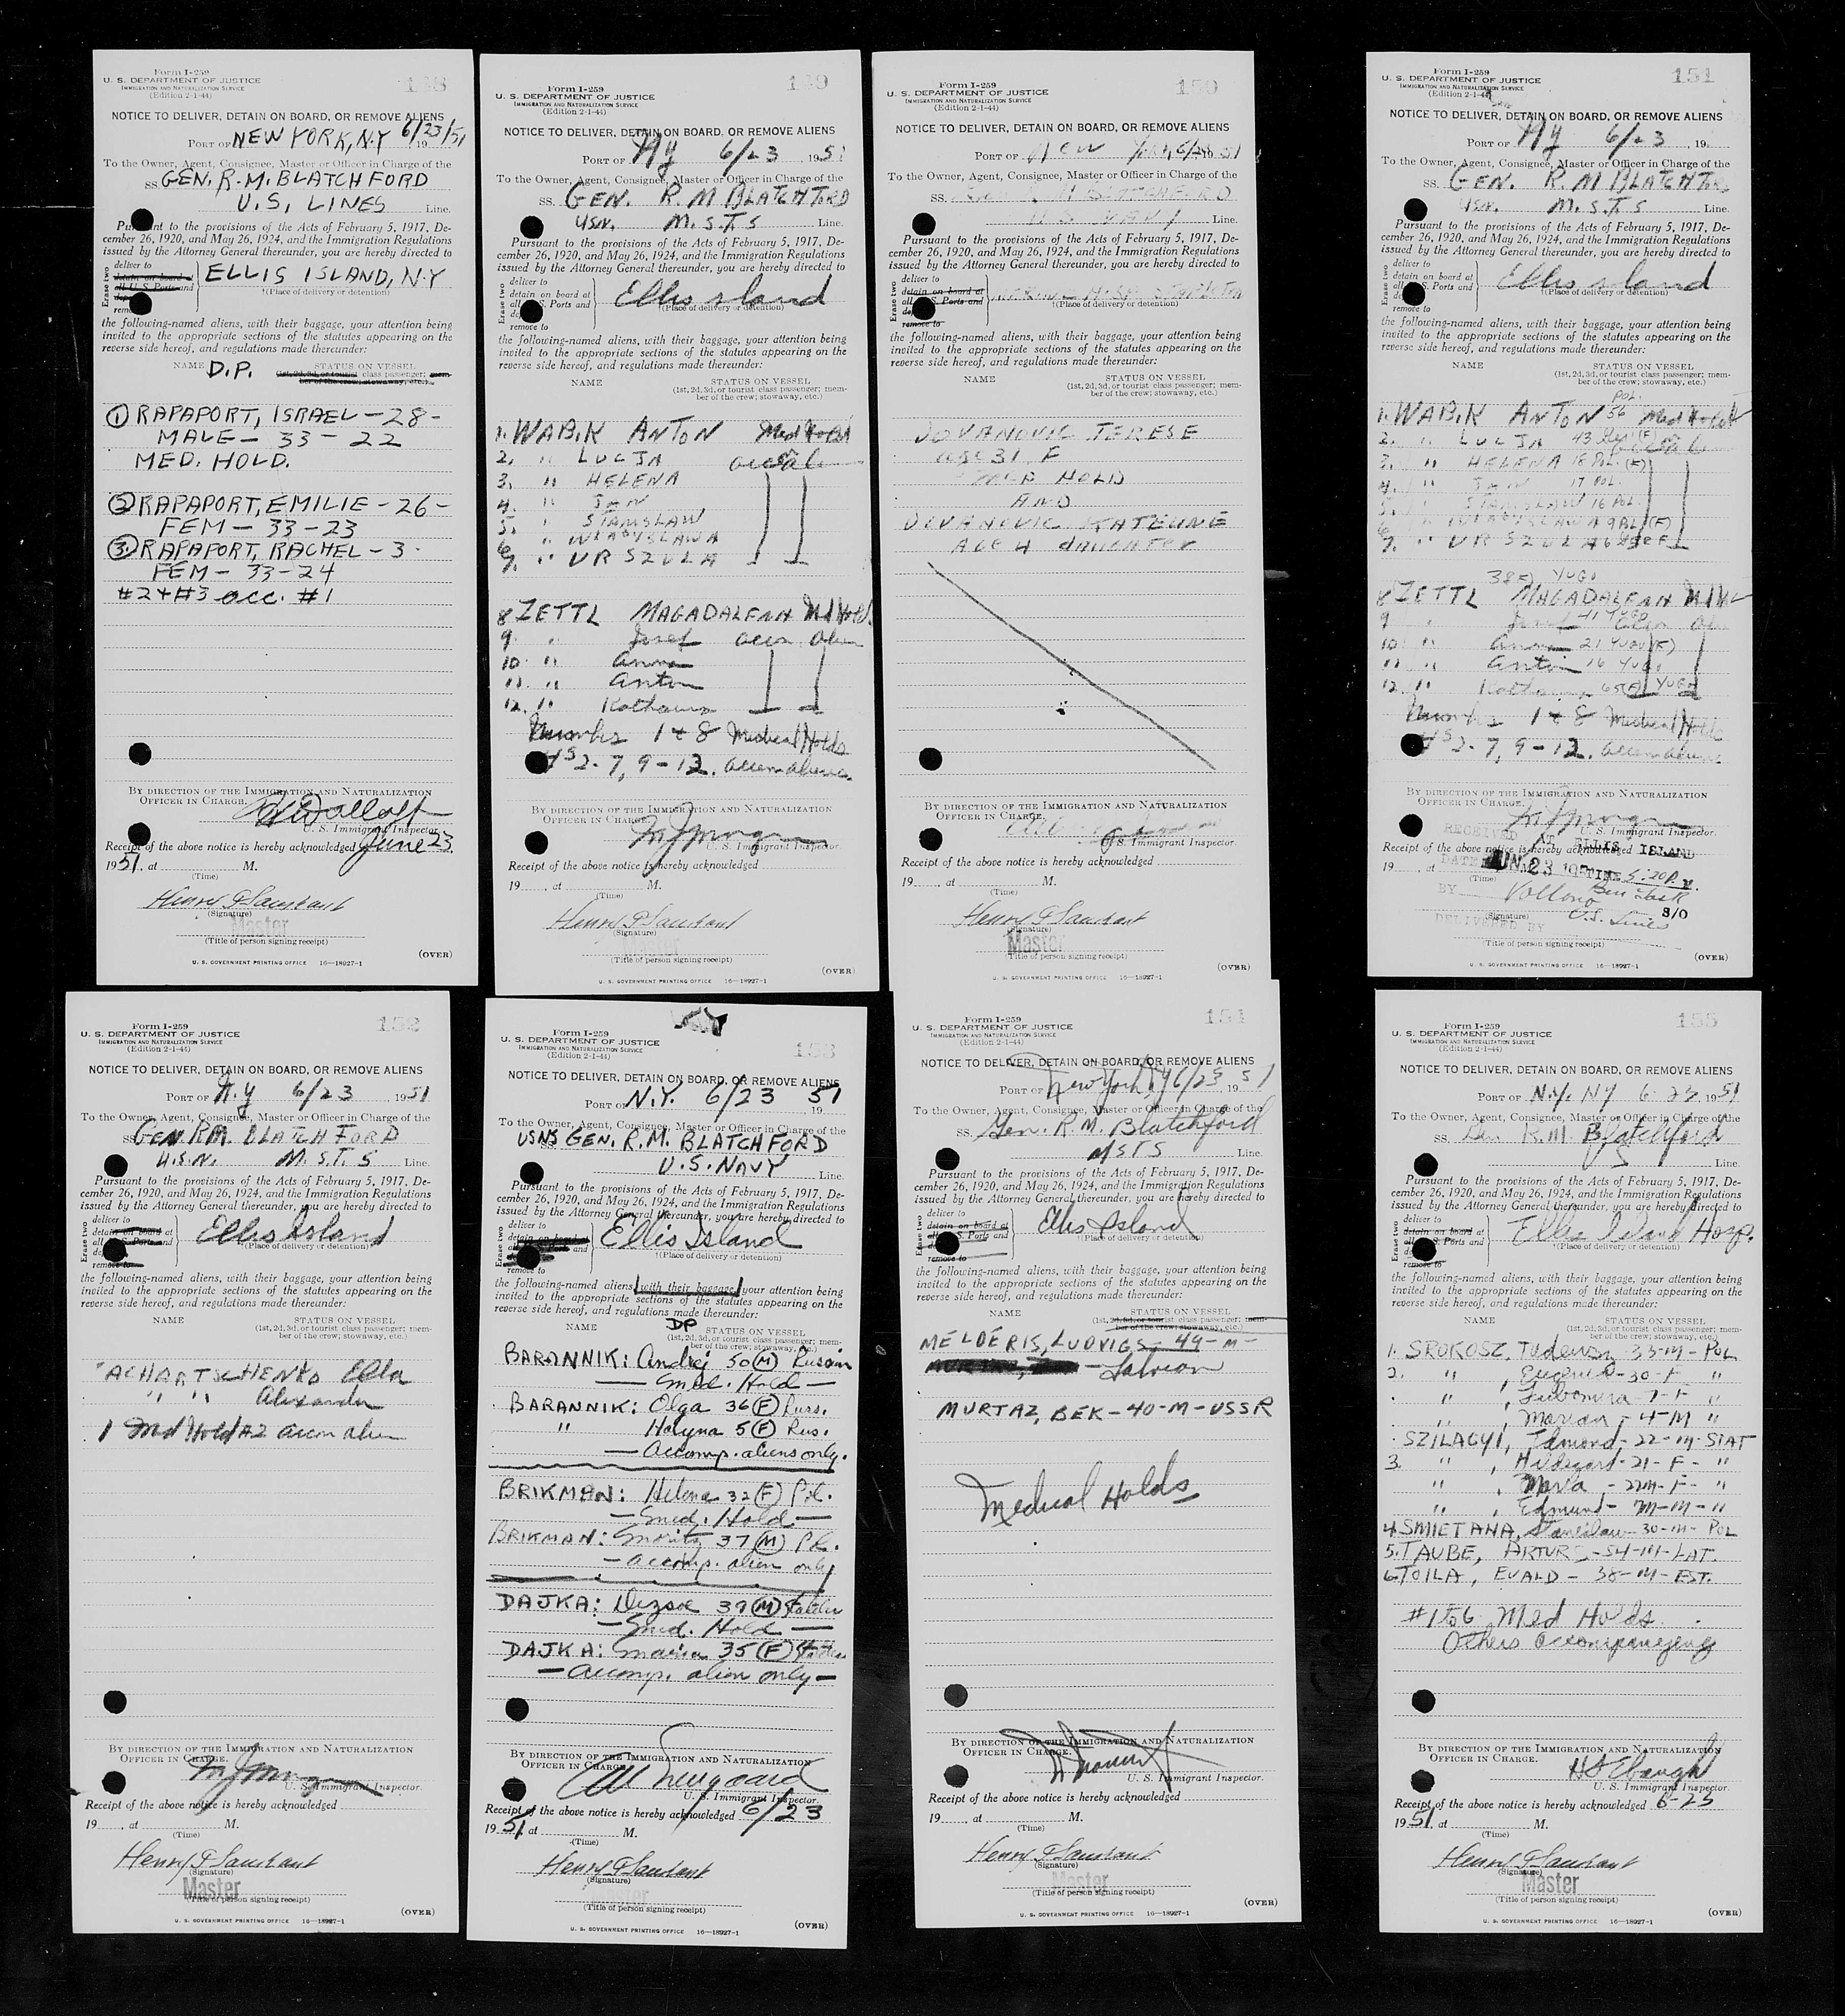 Form I-259
U. S. DEPARTMENT OF JUSTICE
IMMIGRATION AND NATURALIZATION SERVICE
(Edition 2-1-44)
148
NOTICE TO DELIVER, DETAIN ON BOARD, OR REMOVE ALIENS
PORT OF NEW YORK, N.Y 6/23/51
To the Owner, Agent, Consignee, Master or Officer in Charge of the
SS. GEN. R. M. BLATCHFORD
U.S. LINES Line.
Pursuant to the provisions of the Acts of February 5, 1917, De-
cember 26, 1920, and May 26, 1924, and the Immigration Regulations
issued by the Attorney General thereunder, you are hereby directed to
Erase two
deliver to
detain on board at
all U. S. Ports and
remove to
ELLIS ISLAND, N.Y
(Place of delivery or detention)
the following-named aliens, with their baggage, your attention being
invited to the appropriate sections of the statutes appearing on the
reverse side hereof, and regulations made thereunder:
NAME D.P. STATUS ON VESSEL
(1st, 2d, 3d, or tourist class passenger; mem-
ber of the crew; stowaway, etc.)
① RAPAPORT, ISRAEL - 28 -
MALE - 33 - 22
MED. HOLD.
② RAPAPORT, EMILIE - 26 -
FEM - 33 - 23
③ RAPAPORT, RACHEL - 3 -
FEM - 33 - 24
#2 + #3 acc. #1
BY DIRECTION OF THE IMMIGRATION AND NATURALIZATION
OFFICER IN CHARGE.
U. S. Immigrant Inspector.
Receipt of the above notice is hereby acknowledged June 23,
1951, at M.
(Time)
(Signature)
Master
(Title of person signing receipt)
(OVER)
U. S. GOVERNMENT PRINTING OFFICE 16—18927-1
Form I-259
U. S. DEPARTMENT OF JUSTICE
IMMIGRATION AND NATURALIZATION SERVICE
(Edition 2-1-44)
149
NOTICE TO DELIVER, DETAIN ON BOARD, OR REMOVE ALIENS
PORT OF NY 6/23, 1951
To the Owner, Agent, Consignee, Master or Officer in Charge of the
SS. GEN. R M BLATCHFORD
USN. M.S.T.S Line.
Pursuant to the provisions of the Acts of February 5, 1917, De-
cember 26, 1920, and May 26, 1924, and the Immigration Regulations
issued by the Attorney General thereunder, you are hereby directed to
Erase two
deliver to
detain on board at
all U. S. Ports and
remove to
Ellis sland
(Place of delivery or detention)
the following-named aliens, with their baggage, your attention being
invited to the appropriate sections of the statutes appearing on the
reverse side hereof, and regulations made thereunder:
NAME STATUS ON VESSEL
(1st, 2d, 3d, or tourist class passenger; mem-
ber of the crew; stowaway, etc.)
1. WABIK ANTON Med Hold
2. " LUCJA
3. " HELENA
4. " JAN
5. " STANISLAW
6. " WLADYSLAWA
7. " URSZULA
8 ZETTL MAGADALENA Md Hold.
9. " Josef accom alien
10. " Anna
11. " Anton
12. "
Numbers 1 & 8 Medical Holds
#s 2-7, 9-12. accom aliens.
BY DIRECTION OF THE IMMIGRATION AND NATURALIZATION
OFFICER IN CHARGE.
U. S. Immigrant Inspector.
Receipt of the above notice is hereby acknowledged
19 , at M.
(Time)
(Signature)
Master
(Title of person signing receipt)
(OVER)
U. S. GOVERNMENT PRINTING OFFICE 16—18927-1
Form I-259
U. S. DEPARTMENT OF JUSTICE
IMMIGRATION AND NATURALIZATION SERVICE
(Edition 2-1-44)
150
NOTICE TO DELIVER, DETAIN ON BOARD, OR REMOVE ALIENS
PORT OF New York, 1951
To the Owner, Agent, Consignee, Master or Officer in Charge of the
SS. R M BLATCHFORD
U S NAVY Line.
Pursuant to the provisions of the Acts of February 5, 1917, De-
cember 26, 1920, and May 26, 1924, and the Immigration Regulations
issued by the Attorney General thereunder, you are hereby directed to
Erase two
deliver to
detain on board at
all U. S. Ports and
remove to
(Place of delivery or detention)
the following-named aliens, with their baggage, your attention being
invited to the appropriate sections of the statutes appearing on the
reverse side hereof, and regulations made thereunder:
NAME STATUS ON VESSEL
(1st, 2d, 3d, or tourist class passenger; mem-
ber of the crew; stowaway, etc.)
JOVANOVIC TERESE
age 31 F
MED HOLD
AND
JOVANOVIC KATEUNE
AGE 4 daughter
BY DIRECTION OF THE IMMIGRATION AND NATURALIZATION
OFFICER IN CHARGE.
U. S. Immigrant Inspector.
Receipt of the above notice is hereby acknowledged
19 , at M.
(Time)
(Signature)
Master
(Title of person signing receipt)
(OVER)
U. S. GOVERNMENT PRINTING OFFICE 16—18927-1
Form I-259
U. S. DEPARTMENT OF JUSTICE
IMMIGRATION AND NATURALIZATION SERVICE
(Edition 2-1-44)
151
NOTICE TO DELIVER, DETAIN ON BOARD, OR REMOVE ALIENS
PORT OF NY 6/23, 19
To the Owner, Agent, Consignee, Master or Officer in Charge of the
SS. GEN. R. M BLATCHFORD
USN. M.S.T.S Line.
Pursuant to the provisions of the Acts of February 5, 1917, De-
cember 26, 1920, and May 26, 1924, and the Immigration Regulations
issued by the Attorney General thereunder, you are hereby directed to
Erase two
deliver to
detain on board at
all U. S. Ports and
remove to
Ellis sland
(Place of delivery or detention)
the following-named aliens, with their baggage, your attention being
invited to the appropriate sections of the statutes appearing on the
reverse side hereof, and regulations made thereunder:
NAME STATUS ON VESSEL
(1st, 2d, 3d, or tourist class passenger; mem-
ber of the crew; stowaway, etc.)
POL.
1. WABIK ANTON 56 Med Hold
2. " LUCJA 43 (F)
3. " HELENA 18 POL. (F)
4. " JAN 17 POL.
5. " STANISLAW 16 POL.
6. " WLADYSLAWA 9 POL (F)
7. " URSZULA 6
38 (F) YUGO
8 ZETTL MAGADALENA
9 " Josef 41 YUGO
10 " Anna 21 YUGO (F)
11 " Anton 16 YUGO
12. " 65 (F) YUGO
Numbers 1 & 8 Medical Holds
#s 2-7, 9-12. accom aliens.
BY DIRECTION OF THE IMMIGRATION AND NATURALIZATION
OFFICER IN CHARGE.
U. S. Immigrant Inspector.
RECEIVED AT ELLIS ISLAND
Receipt of the above notice is hereby acknowledged
DATE JUN 23 TIME 5:20 P.M.
19 , at
(Time)
BY
(Signature) U.S. Lines S/O
DELIVERED BY
(Title of person signing receipt)
(OVER)
U. S. GOVERNMENT PRINTING OFFICE 16—18927-1
Form I-259
U. S. DEPARTMENT OF JUSTICE
IMMIGRATION AND NATURALIZATION SERVICE
(Edition 2-1-44)
152
NOTICE TO DELIVER, DETAIN ON BOARD, OR REMOVE ALIENS
PORT OF N.Y 6/23, 1951
To the Owner, Agent, Consignee, Master or Officer in Charge of the
SS GEN R.M. BLATCHFORD
U.S.N. M.S.T.S Line.
Pursuant to the provisions of the Acts of February 5, 1917, De-
cember 26, 1920, and May 26, 1924, and the Immigration Regulations
issued by the Attorney General thereunder, you are hereby directed to
Erase two
deliver to
detain on board at
all U. S. Ports and
remove to
Ellis Island
(Place of delivery or detention)
the following-named aliens, with their baggage, your attention being
invited to the appropriate sections of the statutes appearing on the
reverse side hereof, and regulations made thereunder:
NAME STATUS ON VESSEL
(1st, 2d, 3d, or tourist class passenger; mem-
ber of the crew; stowaway, etc.)
ACHARTSCHENKO Ella
" " Alexander
1 Md Hold #2 accom alien
BY DIRECTION OF THE IMMIGRATION AND NATURALIZATION
OFFICER IN CHARGE.
U. S. Immigrant Inspector.
Receipt of the above notice is hereby acknowledged
19 , at M.
(Time)
(Signature)
Master
(Title of person signing receipt)
(OVER)
U. S. GOVERNMENT PRINTING OFFICE 16—18927-1
Form I-259
U. S. DEPARTMENT OF JUSTICE
IMMIGRATION AND NATURALIZATION SERVICE
(Edition 2-1-44)
153
NOTICE TO DELIVER, DETAIN ON BOARD, OR REMOVE ALIENS
PORT OF N.Y. 6/23 51
To the Owner, Agent, Consignee, Master or Officer in Charge of the
USNS GEN. R.M. BLATCHFORD
U.S. NAVY Line.
Pursuant to the provisions of the Acts of February 5, 1917, De-
cember 26, 1920, and May 26, 1924, and the Immigration Regulations
issued by the Attorney General thereunder, you are hereby directed to
Erase two
deliver to
detain on board at
all U. S. Ports and
remove to
Ellis Island
(Place of delivery or detention)
the following-named aliens, with their baggage, your attention being
invited to the appropriate sections of the statutes appearing on the
reverse side hereof, and regulations made thereunder:
NAME DP STATUS ON VESSEL
(1st, 2d, 3d, or tourist class passenger; mem-
ber of the crew; stowaway, etc.)
BARANNIK: Andrej 50 (M) Russian
— med. Hold —
BARANNIK: Olga 36 (F) Russ.
" Halyna 5 (F) Rus.
— Accomp. aliens only.
BRIKMAN: Helena 32 (F) Pol.
— med. Hold —
BRIKMAN: Moritz 37 (M) Pol.
— accomp. alien only
DAJKA: Dezsoe 39 (M)
— med. Hold —
DAJKA: Maria 35 (F)
— accomp. alien only —
BY DIRECTION OF THE IMMIGRATION AND NATURALIZATION
OFFICER IN CHARGE.
U. S. Immigrant Inspector.
Receipt of the above notice is hereby acknowledged 6/23
1951, at M.
(Time)
(Signature)
Master
(Title of person signing receipt)
(OVER)
U. S. GOVERNMENT PRINTING OFFICE 16—18927-1
Form I-259
U. S. DEPARTMENT OF JUSTICE
IMMIGRATION AND NATURALIZATION SERVICE
(Edition 2-1-44)
154
NOTICE TO DELIVER, DETAIN ON BOARD, OR REMOVE ALIENS
PORT OF New York, NY 6/23 1951
To the Owner, Agent, Consignee, Master or Officer in Charge of the
SS. Gen. R. M. Blatchford
MSTS Line.
Pursuant to the provisions of the Acts of February 5, 1917, De-
cember 26, 1920, and May 26, 1924, and the Immigration Regulations
issued by the Attorney General thereunder, you are hereby directed to
Erase two
deliver to
detain on board at
all U. S. Ports and
remove to
Ellis Island
(Place of delivery or detention)
the following-named aliens, with their baggage, your attention being
invited to the appropriate sections of the statutes appearing on the
reverse side hereof, and regulations made thereunder:
NAME STATUS ON VESSEL
(1st, 2d, 3d, or tourist class passenger; mem-
ber of the crew; stowaway, etc.)
MELDERIS, LUDVIGS - 49 - M -
- Latvian
MURTAZ, BEK - 40 - M - USSR
Medical Holds
BY DIRECTION OF THE IMMIGRATION AND NATURALIZATION
OFFICER IN CHARGE.
U. S. Immigrant Inspector.
Receipt of the above notice is hereby acknowledged
19 , at M.
(Time)
(Signature)
Master
(Title of person signing receipt)
(OVER)
U. S. GOVERNMENT PRINTING OFFICE 16—18927-1
Form I-259
U. S. DEPARTMENT OF JUSTICE
IMMIGRATION AND NATURALIZATION SERVICE
(Edition 2-1-44)
155
NOTICE TO DELIVER, DETAIN ON BOARD, OR REMOVE ALIENS
PORT OF N.Y. NY 6-23, 1951
To the Owner, Agent, Consignee, Master or Officer in Charge of the
SS. Gen R.M. Blatchford
Line.
Pursuant to the provisions of the Acts of February 5, 1917, De-
cember 26, 1920, and May 26, 1924, and the Immigration Regulations
issued by the Attorney General thereunder, you are hereby directed to
Erase two
deliver to
detain on board at
all U. S. Ports and
remove to
Ellis Island Hosp.
(Place of delivery or detention)
the following-named aliens, with their baggage, your attention being
invited to the appropriate sections of the statutes appearing on the
reverse side hereof, and regulations made thereunder:
NAME STATUS ON VESSEL
(1st, 2d, 3d, or tourist class passenger; mem-
ber of the crew; stowaway, etc.)
1. SROKOSZ, Tadeusz 33-M - POL
2. " , Eugenia - 30 - F "
" , Lubomira - 7 - F "
" , Marian - 4 - M "
SZILAGYI, Edmond - 22 - M - STAT
3. " , Hildegard - 21 - F - "
" , Maria - 22M - F - "
" , Edmund - M - "
4 SMIETANA, Stanislaw - 30 - M - POL
5. TAUBE, ARTURS - 54 - M - LAT.
6. TOILA, EVALD - 38 - M - EST.
#1 to 6 Med Holds
Others accompanying
BY DIRECTION OF THE IMMIGRATION AND NATURALIZATION
OFFICER IN CHARGE.
U. S. Immigrant Inspector.
Receipt of the above notice is hereby acknowledged 6-23
1951, at M.
(Time)
(Signature)
Master
(Title of person signing receipt)
(OVER)
U. S. GOVERNMENT PRINTING OFFICE 16—18927-1